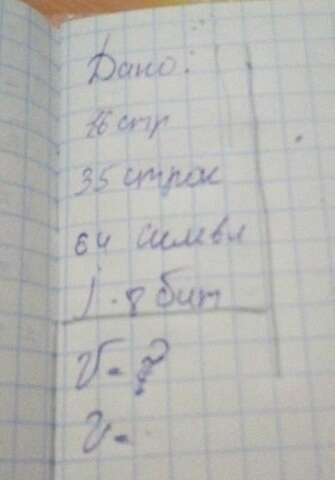 Дано:
16 стр
35 строк
64 символ
i - 8 бит
V - ?
V -